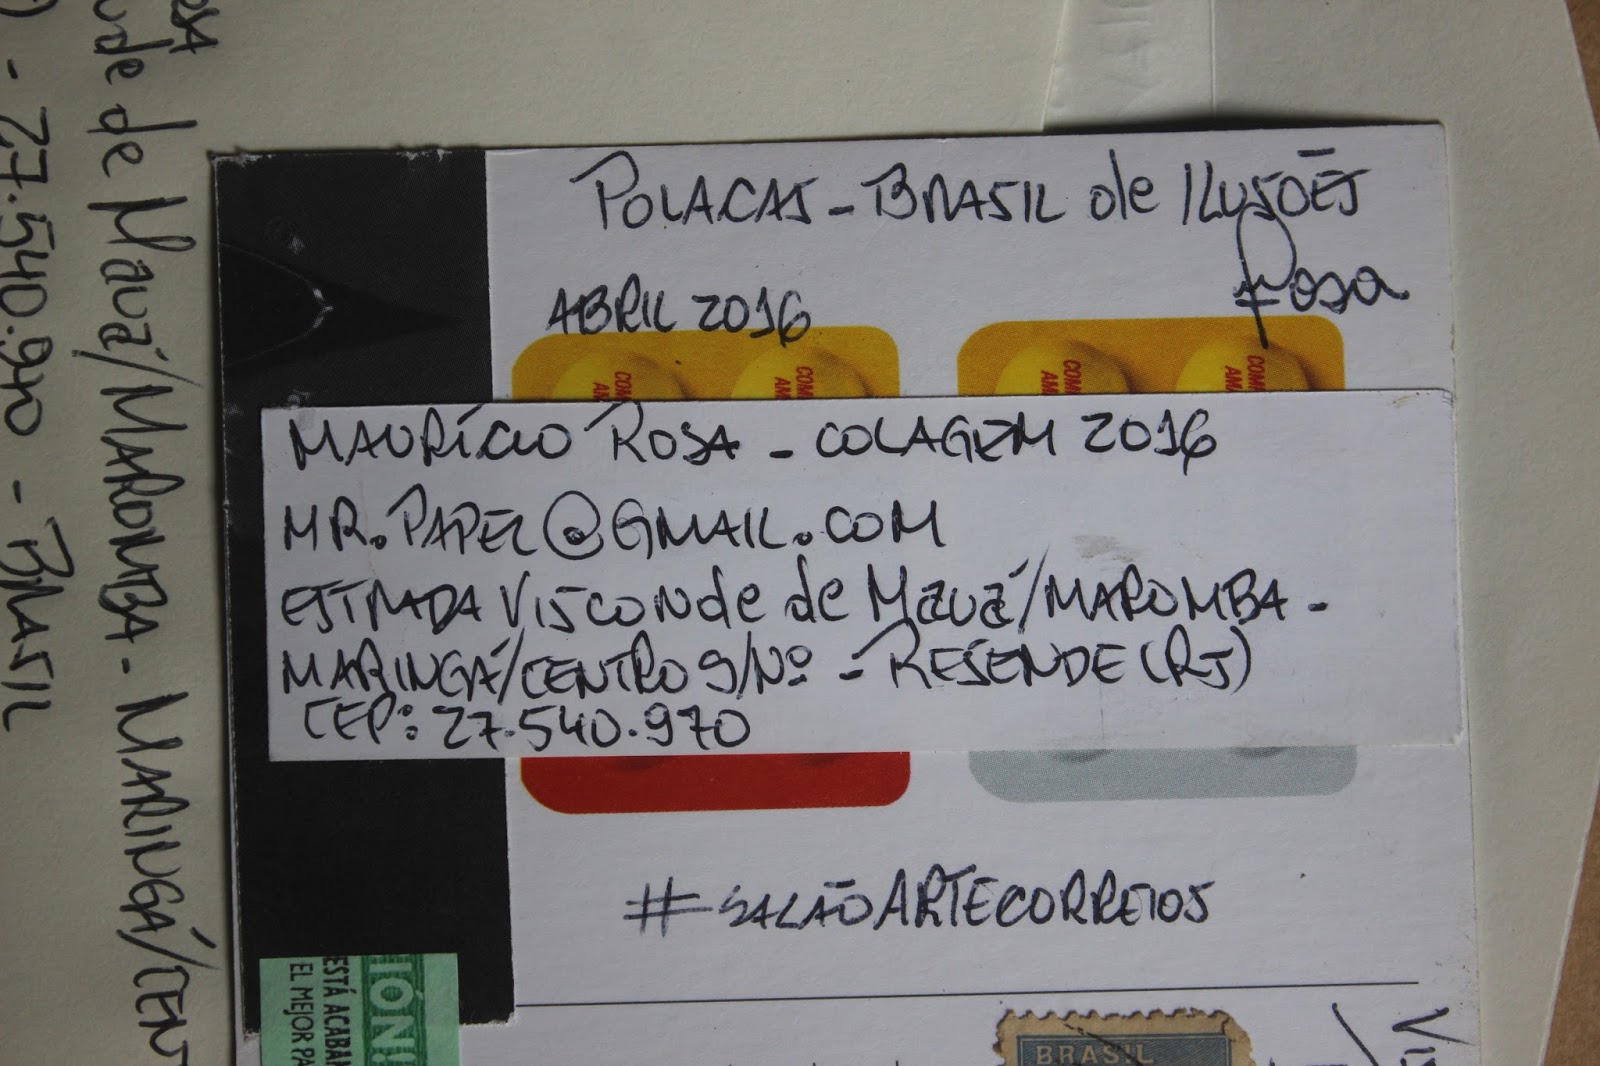 POLACAS - BRASIL de ILUSÕES
Rosa
ABRIL 2016
COM
AM
COM
AM
COM
AM
COM
AM
MAURÍCIO ROSA - COLAGEM 2016
MR.PAPEL@GMAIL.COM
ESTRADA VISCONde de Mauá/MAROMBA -
MARINGÁ/CENTRO S/Nº - RESENDE (RJ)
CEP: 27.540.970
#SALÃOARTECORREIOS
IÓN
ESTÁ ACABA
EL MEJOR PA
BRASIL
Vis
OSA
nde de Mauá/MAROMBA - MARINGÁ/CENT
) - 27.540.970 - BRASIL